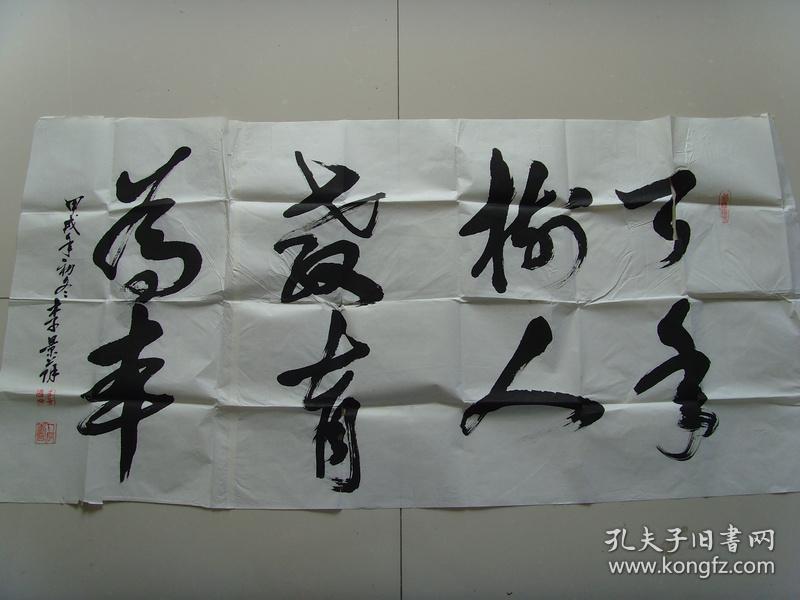 百年
樹人
教育
為本
甲戌年初冬李景祥
孔夫子旧书网
www.kongfz.com